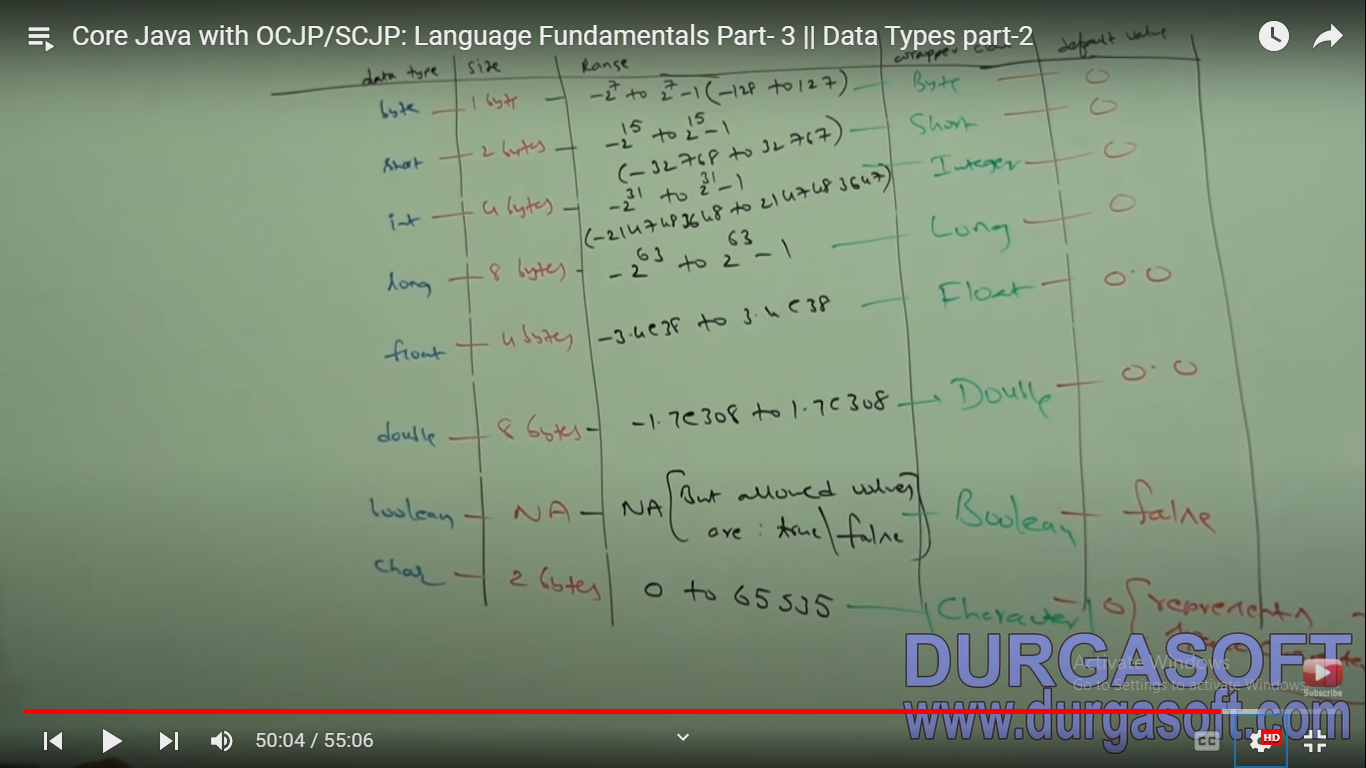 Core Java with OCJP/SCJP: Language Fundamentals Part- 3 || Data Types part-2
data type size Range wrapper class default value
byte — 1 byte — -2^7 to 2^7-1 (-128 to 127) — Byte — 0
short — 2 bytes — -2^15 to 2^15-1 — Short — 0
(-32768 to 32767)
int — 4 bytes — -2^31 to 2^31-1 — Integer — 0
(-2147483648 to 2147483647)
long — 8 bytes - -2^63 to 2^63-1 — Long — 0
float — 4 bytes — -3.4e38 to 3.4e38 — Float — 0.0
double — 8 bytes - -1.7e308 to 1.7e308 — Double — 0.0
boolean — NA — NA [But allowed values — Boolean — false
are : true|false]
char — 2 bytes 0 to 65535 — Character — 0 [represents
DURGASOFT
Activate Windows
Go to Settings to activate Windows.
Subscribe
www.durgasoft.com
50:04 / 55:06
CC
HD